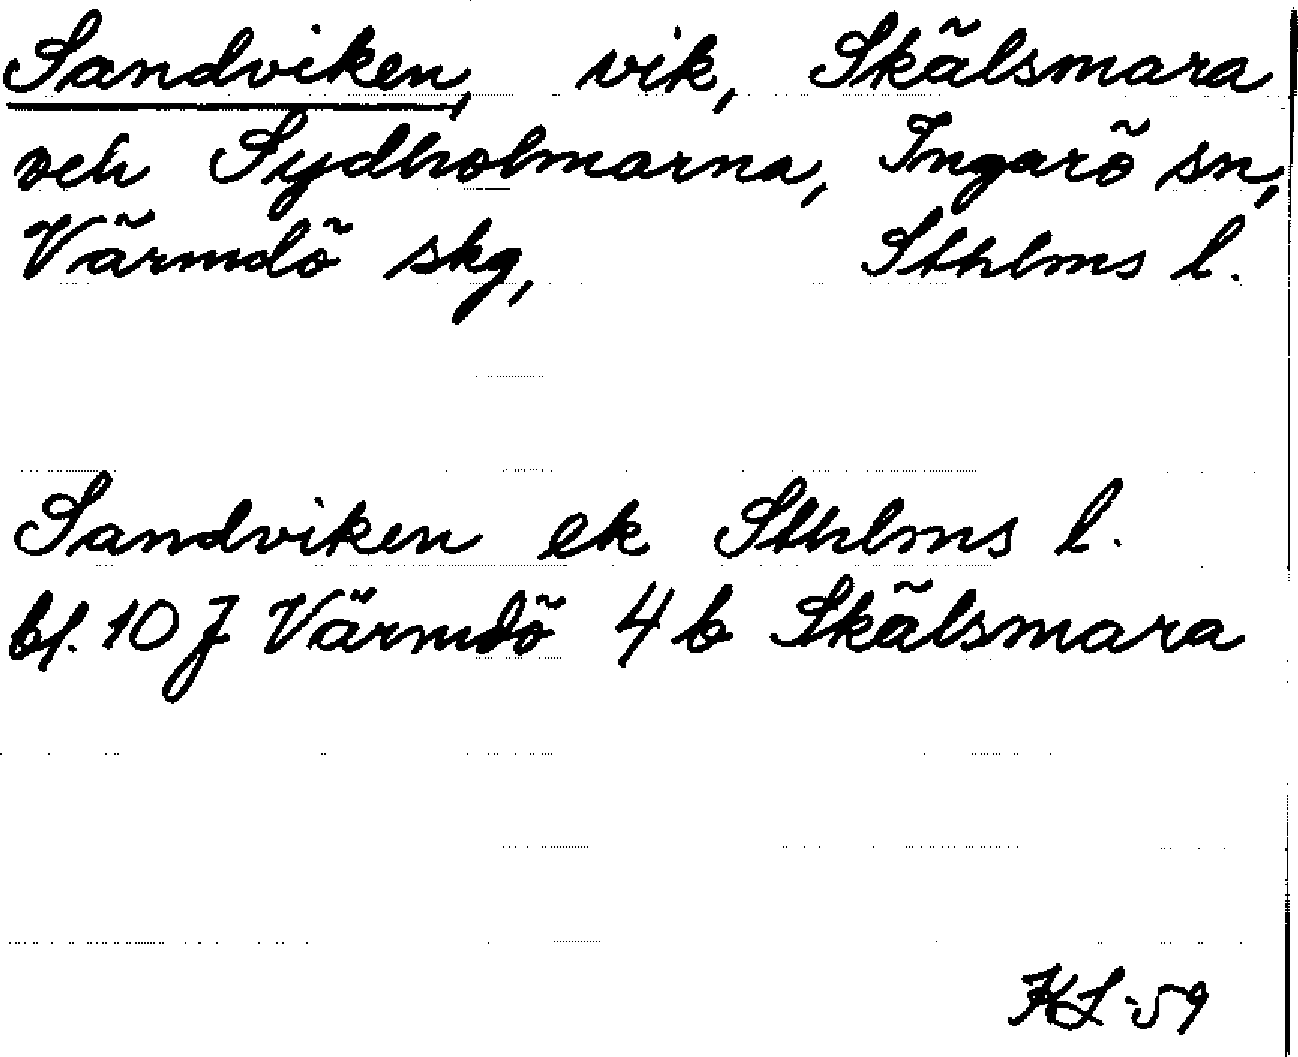 Sandviken, vik, Skälsmara
och Sydholmarna, Ingarö sn,
Värmdö skg, Sthlms l.
Sandviken ek Sthlms l.
bl. 10 J Värmdö 4 b Skälsmara
KL-59